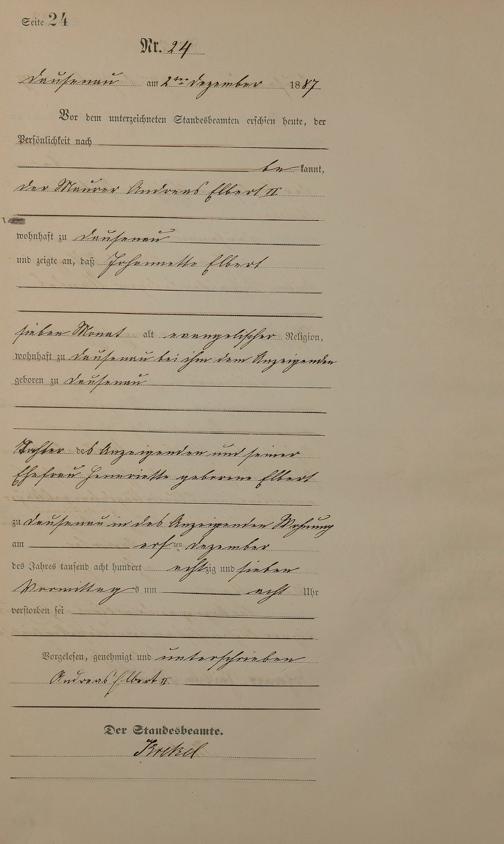 Seite 24
Nr. 24
Dausenau am 2ten Dezember 1887
Vor dem unterzeichneten Standesbeamten erschien heute, der
Persönlichkeit nach
be kannt,
der Maurer Andreas Elbert II
wohnhaft zu Dausenau
und zeigte an, daß Johannette Elbert
sieben Monat alt evangelischer Religion,
wohnhaft zu Dausenau bei ihm dem Anzeigenden
geboren zu Dausenau
Tochter des Anzeigenden und seiner
Ehefrau Henriette geborene Elbert
zu Dausenau in des Anzeigenden Wohnung
am ersten Dezember
des Jahres tausend acht hundert achtzig und sieben
Vormittags um acht Uhr
verstorben sei
Vorgelesen, genehmigt und unterschrieben
Andreas Elbert II.
Der Standesbeamte.